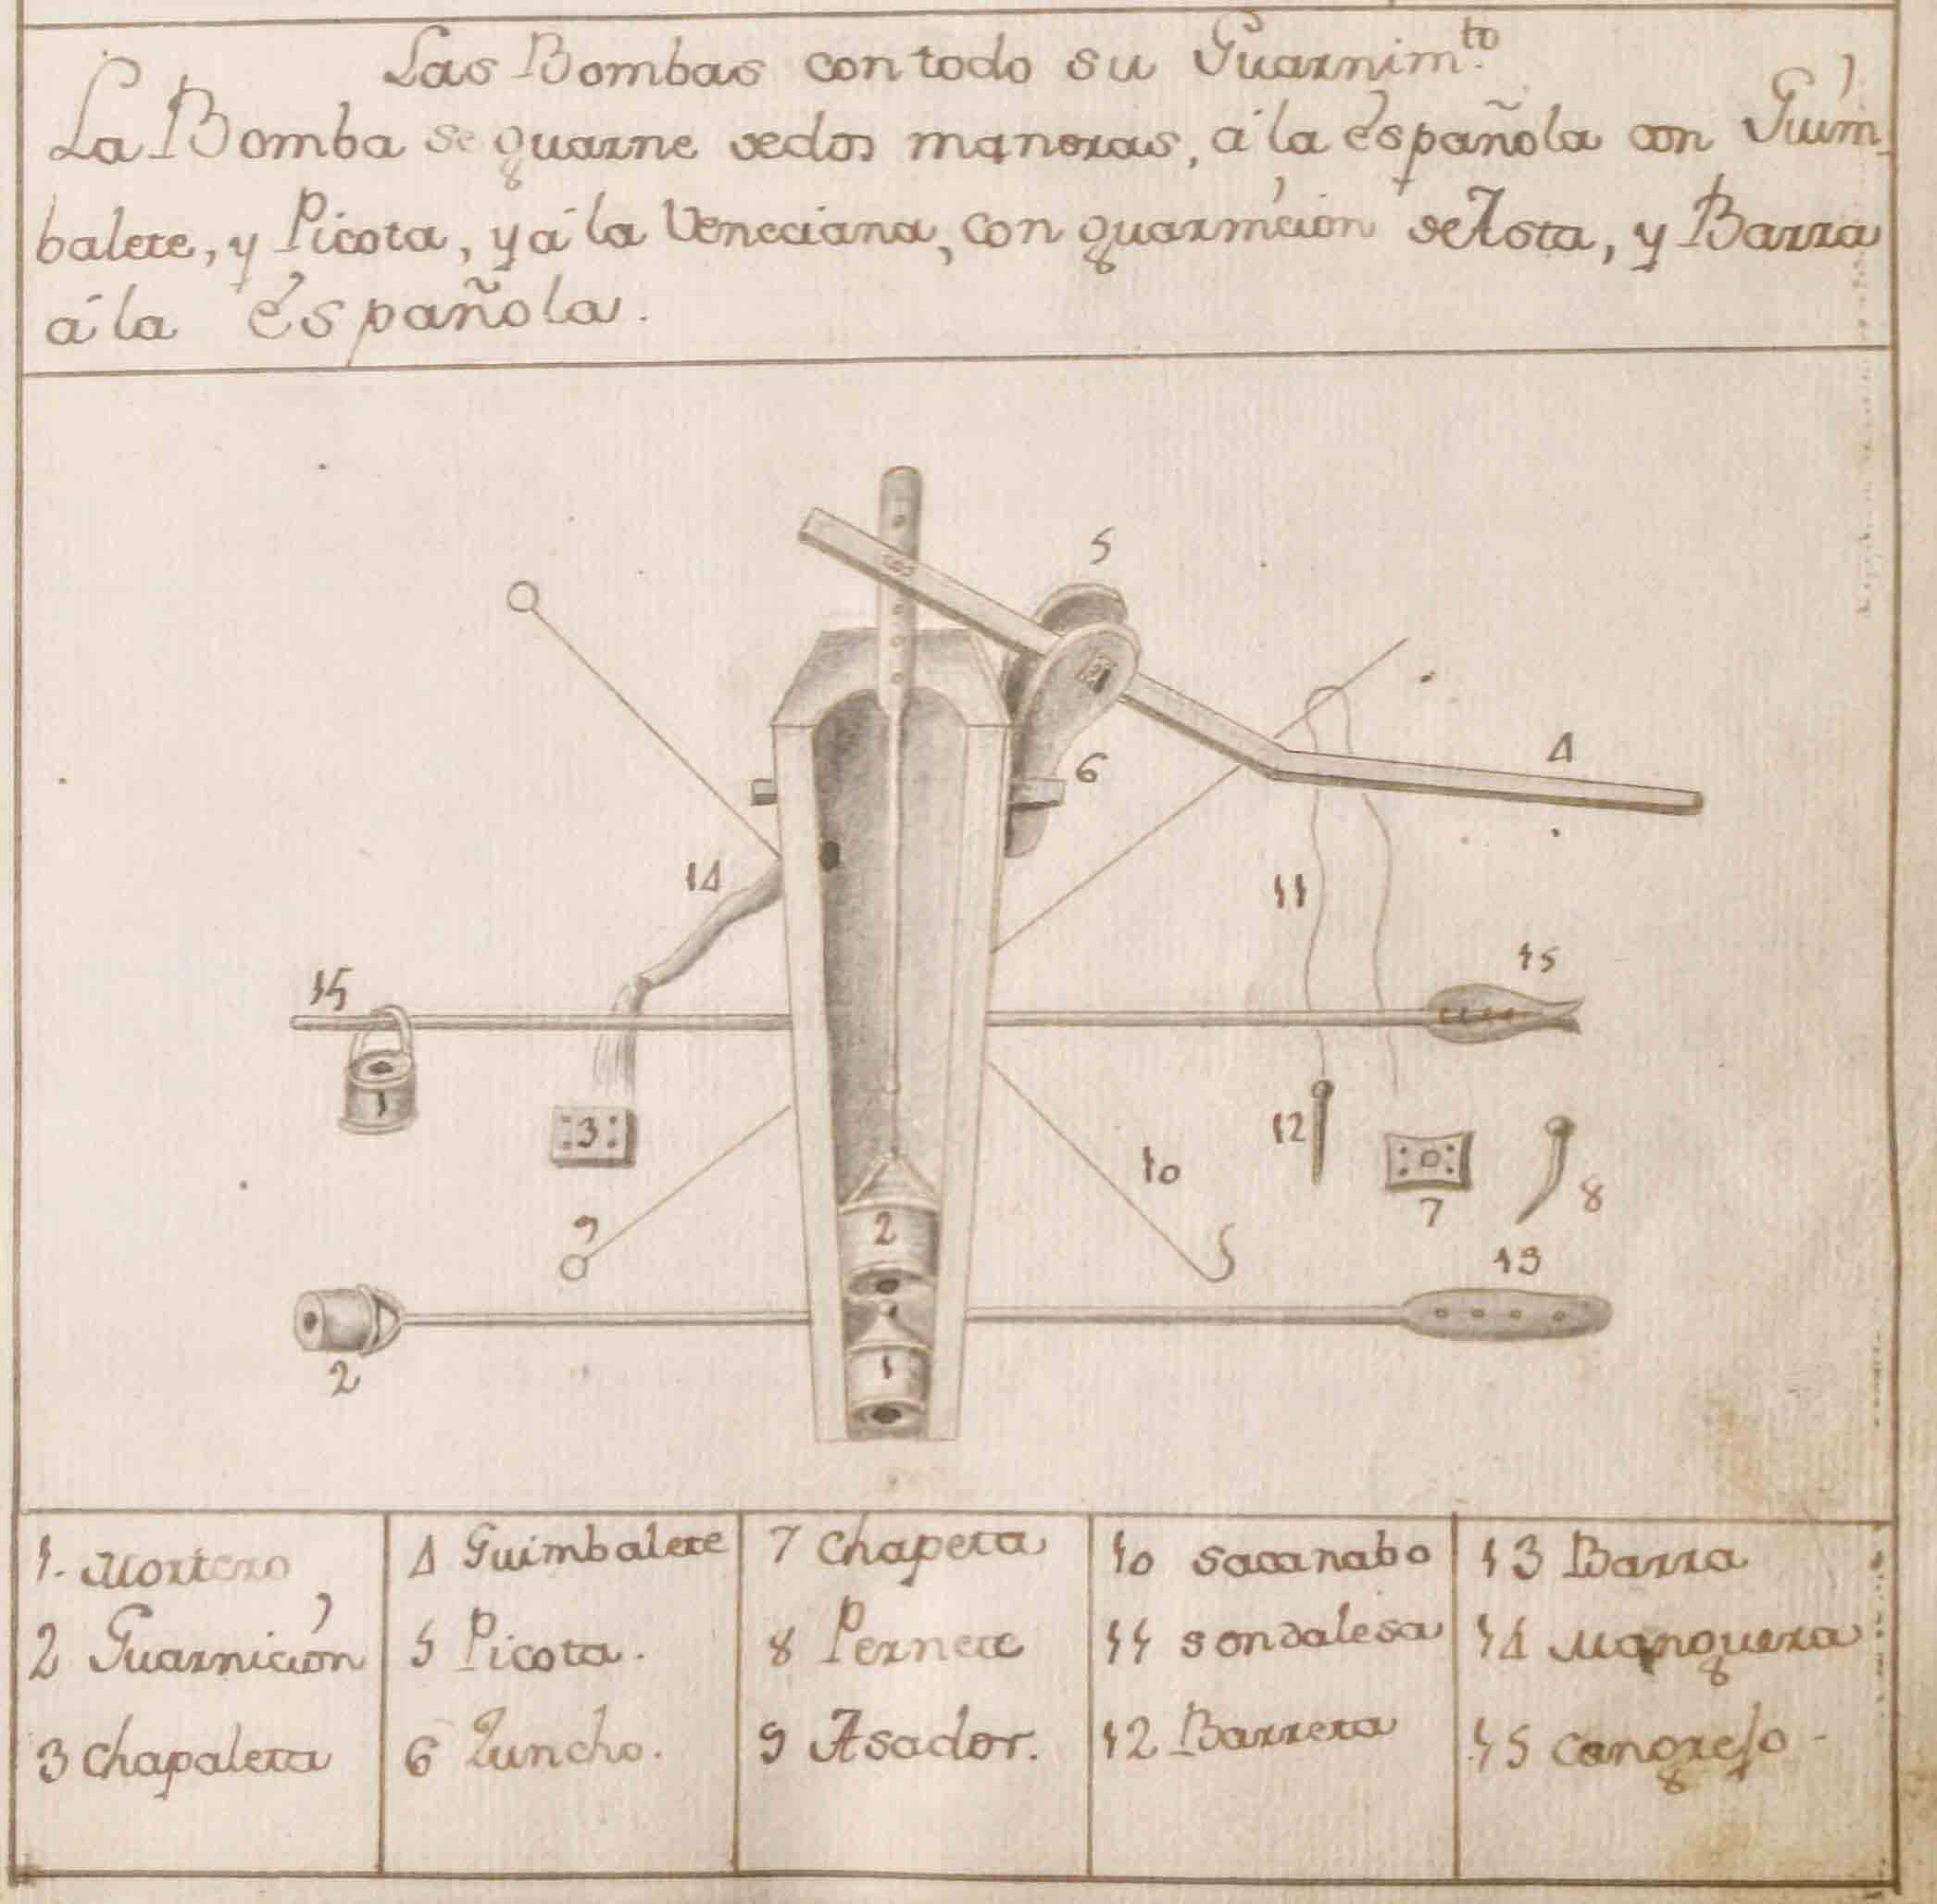 Las Bombas con todo su Guarnim.to
La Bomba se guarne de dos maneras, á la española con Guim-
balete, y Picota, y á la Veneciana, con guarnición de Asta, y Barra
á la española.
5
4
6
14
11
15
15
1
3
12
7
8
10
9
2
13
2
1
1. Mortero
2 Guarnición
3 Chapaleta
4 Guimbalete
5 Picota.
6 Zuncho.
7 Chapeta
8 Pernete
9 Asador.
10 sacanabo
11 sondalesa
12 Barrena
13 Barra
14 Manguera
15 Cangrejo